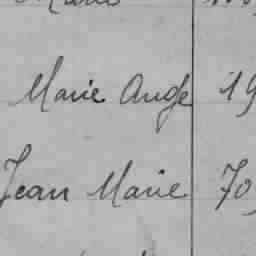 Marie
Marie Ange 19
Jean Marie 70